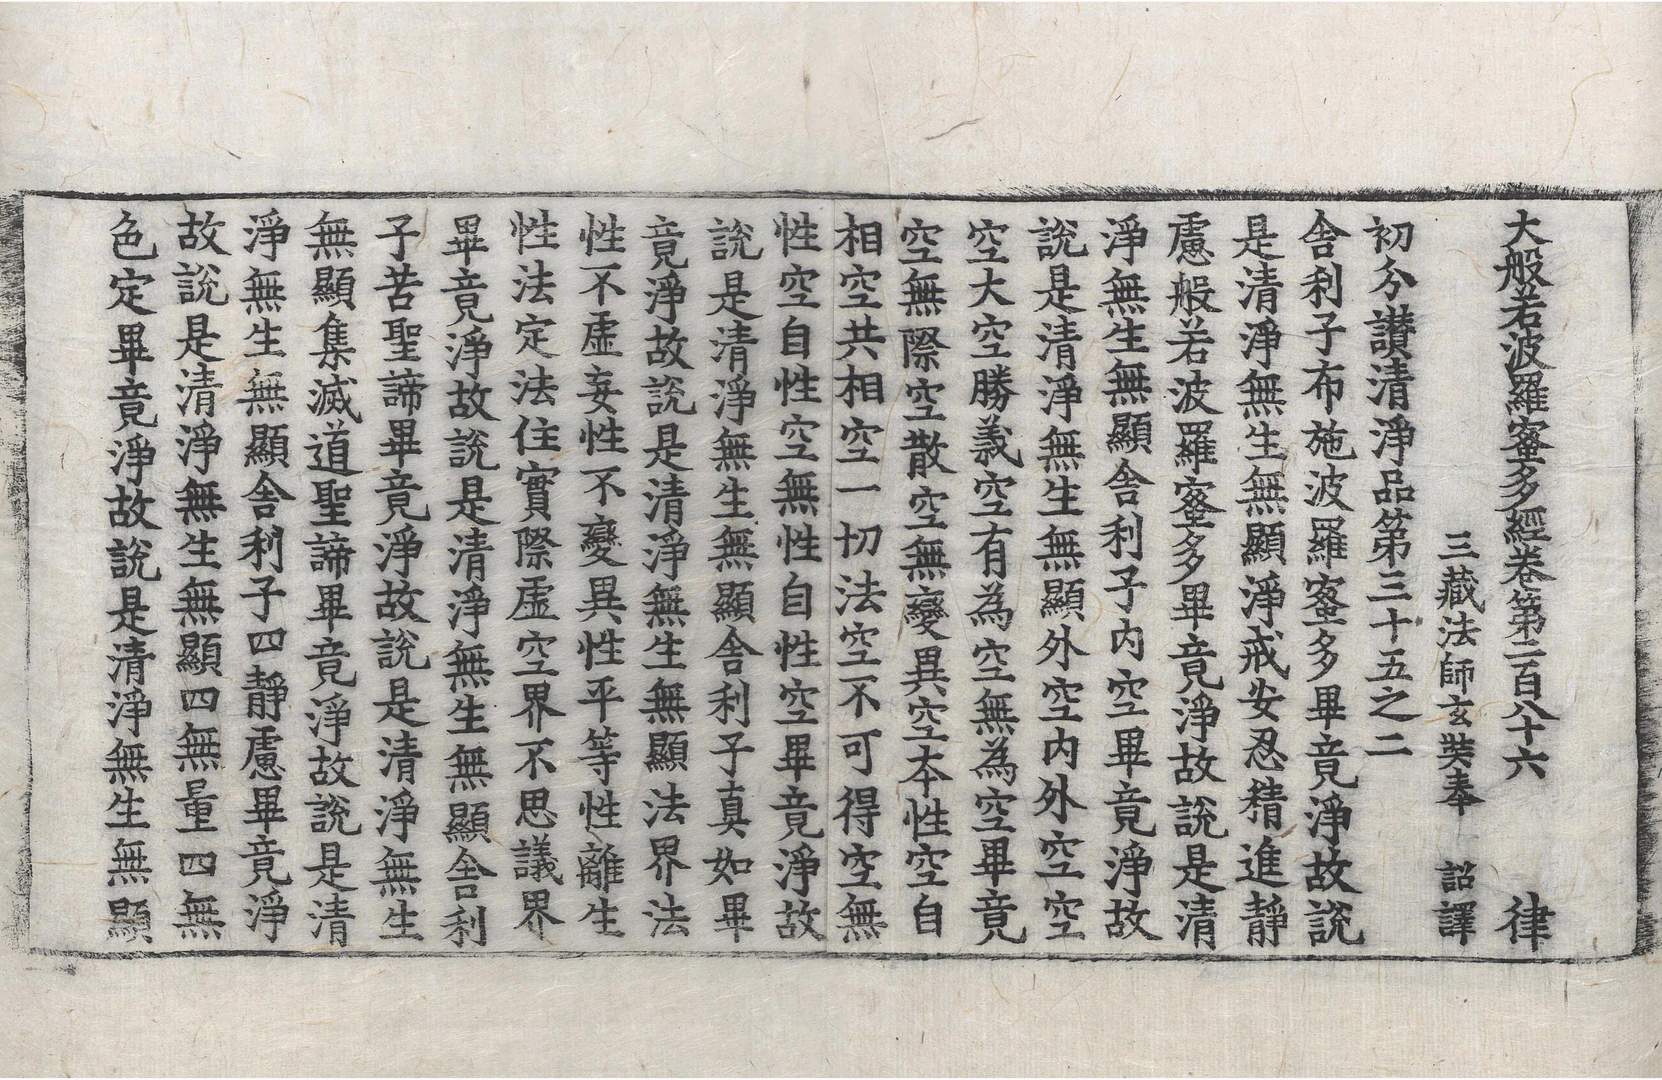 大般若波羅蜜多經卷第二百八十六 律
三藏法師玄奘奉 詔譯
初分讃清淨品第三十五之二
舎利子布施波羅蜜多畢竟淨故說
是清淨無生無顯淨戒安忍精進靜
慮般若波羅蜜多畢竟淨故說是清
淨無生無顯舎利子内空畢竟淨故
說是清淨無生無顯外空内外空空
空大空勝義空有為空無為空畢竟
空無際空散空無變異空本性空自
相空共相空一切法空不可得空無
性空自性空無性自性空畢竟淨故
說是清淨無生無顯舎利子真如畢
竟淨故說是清淨無生無顯法界法
性不虛妄性不變異性平等性離生
性法定法住實際虛空界不思議界
畢竟淨故說是清淨無生無顯舎利
子苦聖諦畢竟淨故說是清淨無生
無顯集滅道聖諦畢竟淨故說是清
淨無生無顯舎利子四靜慮畢竟淨
故說是清淨無生無顯四無量四無
色定畢竟淨故說是清淨無生無顯